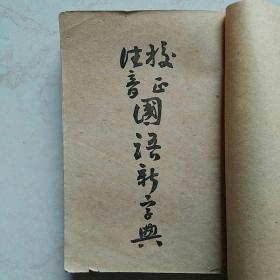 校正
注音
國語新字典